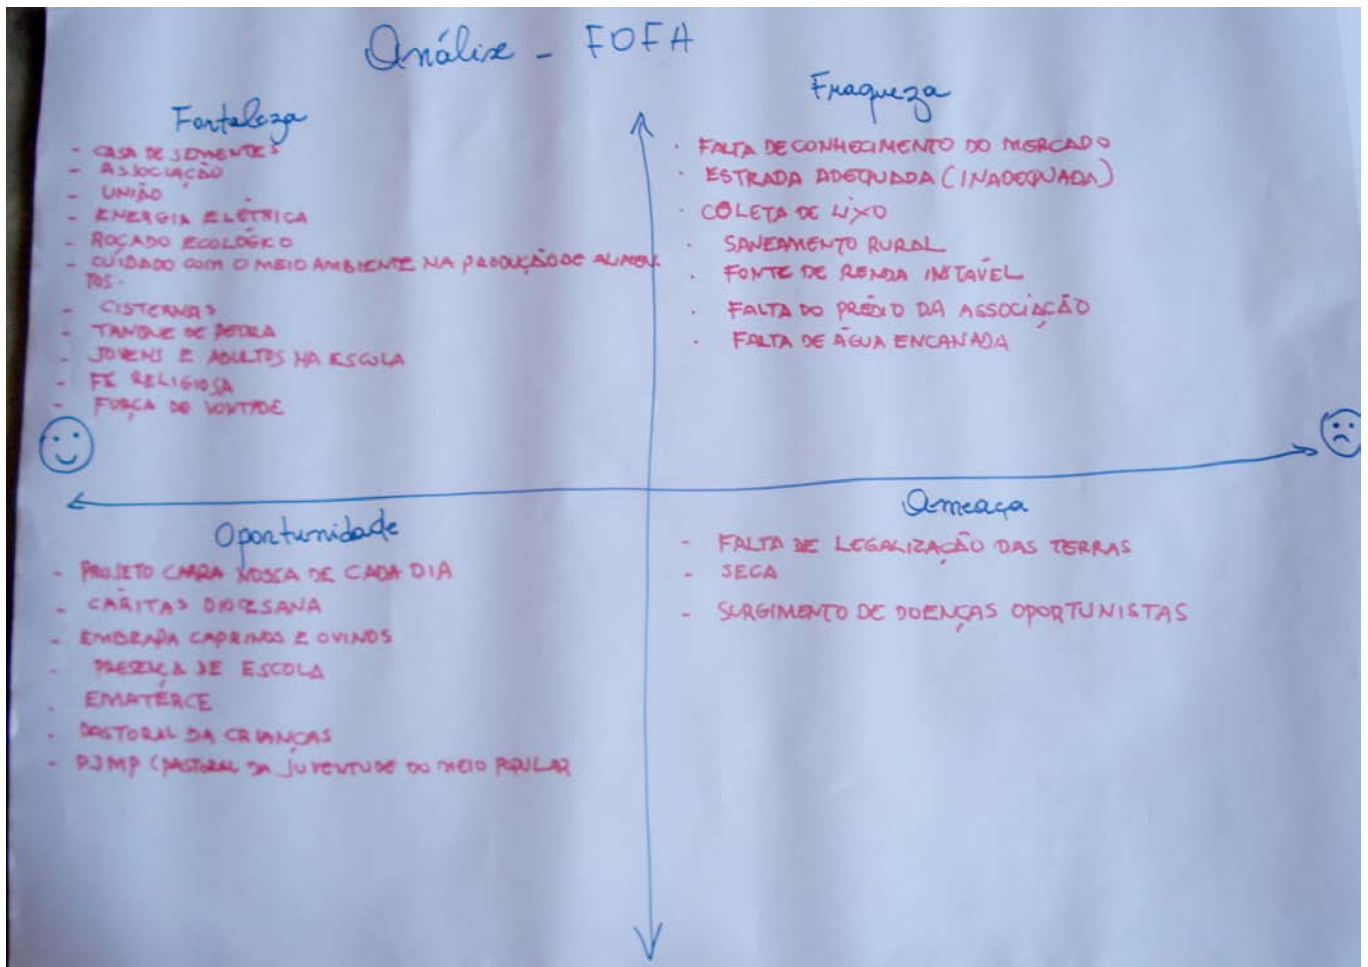 Análise - FOFA
Fortaleza
- CASA DE SEMENTES
- ASSOCIAÇÃO
- UNIÃO
- ENERGIA ELÉTRICA
- ROÇADO ECOLÓGICO
- CUIDADO COM O MEIO AMBIENTE NA PRODUÇÃO DE ALIMEN
TOS.
- CISTERNAS
- TANQUE DE PEDRA
- JOVENS E ADULTOS NA ESCOLA
- FÉ RELIGIOSA
- FORÇA DE VONTADE
Fraqueza
. FALTA DE CONHECIMENTO DO MERCADO
. ESTRADA ADEQUADA (INADEQUADA)
. COLETA DE LIXO
. SANEAMENTO RURAL
. FONTE DE RENDA INSTAVÉL
. FALTA DO PRÉDIO DA ASSOCIAÇÃO
. FALTA DE ÁGUA ENCANADA
Oportunidade
- PROJETO CABRA NOSSA DE CADA DIA
- CÁRITAS DIOCESANA
- EMBRAPA CAPRINOS E OVINOS
- PRESENÇA DE ESCOLA
. EMATÉRCE
- PASTORAL DA CRIANÇAS
- PJMP (PASTORAL DA JUVENTUDE DO MEIO POPULAR
Ameaça
- FALTA DE LEGALIZAÇÃO DAS TERRAS
- SECA
- SURGIMENTO DE DOENÇAS OPORTUNISTAS